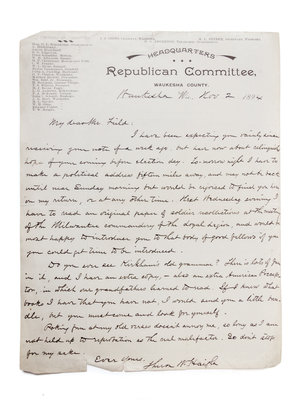 HEADQUARTERS
Republican Committee,
WAUKESHA COUNTY.
Waukesha Wis. Nov 2 1894
My dear Mr Field.
I have been expecting you vainly since
receiving your note of a week ago, but have now about relinquished
hope of your coming before election day. To-morrow night I have to
make a political address fifteen miles away, and may not be back
until near Sunday morning but would be rejoiced to find you here
on my return, or at any other time. Next Wednesday evening I
have to read an original paper of soldier recollections at the meeting
of the Milwaukee commandery of the loyal legion, and would be
most happy to introduce you to that body of good fellows if you
could get time to be introduced.
Do you ever see Kirkham's old grammar? There is lots of fun
in it, and I have an extra copy - also an extra American Preceptor,
in which our grandfathers learned to read. If I knew that
book I have that you have not, I would send you a little bundle,
but you must come and look for yourself.
Poking fun at my old verses doesn't annoy me, so long as I am
not held up to reprobation as the real malefactor. So don't stop
for my sake.
Ever yours,